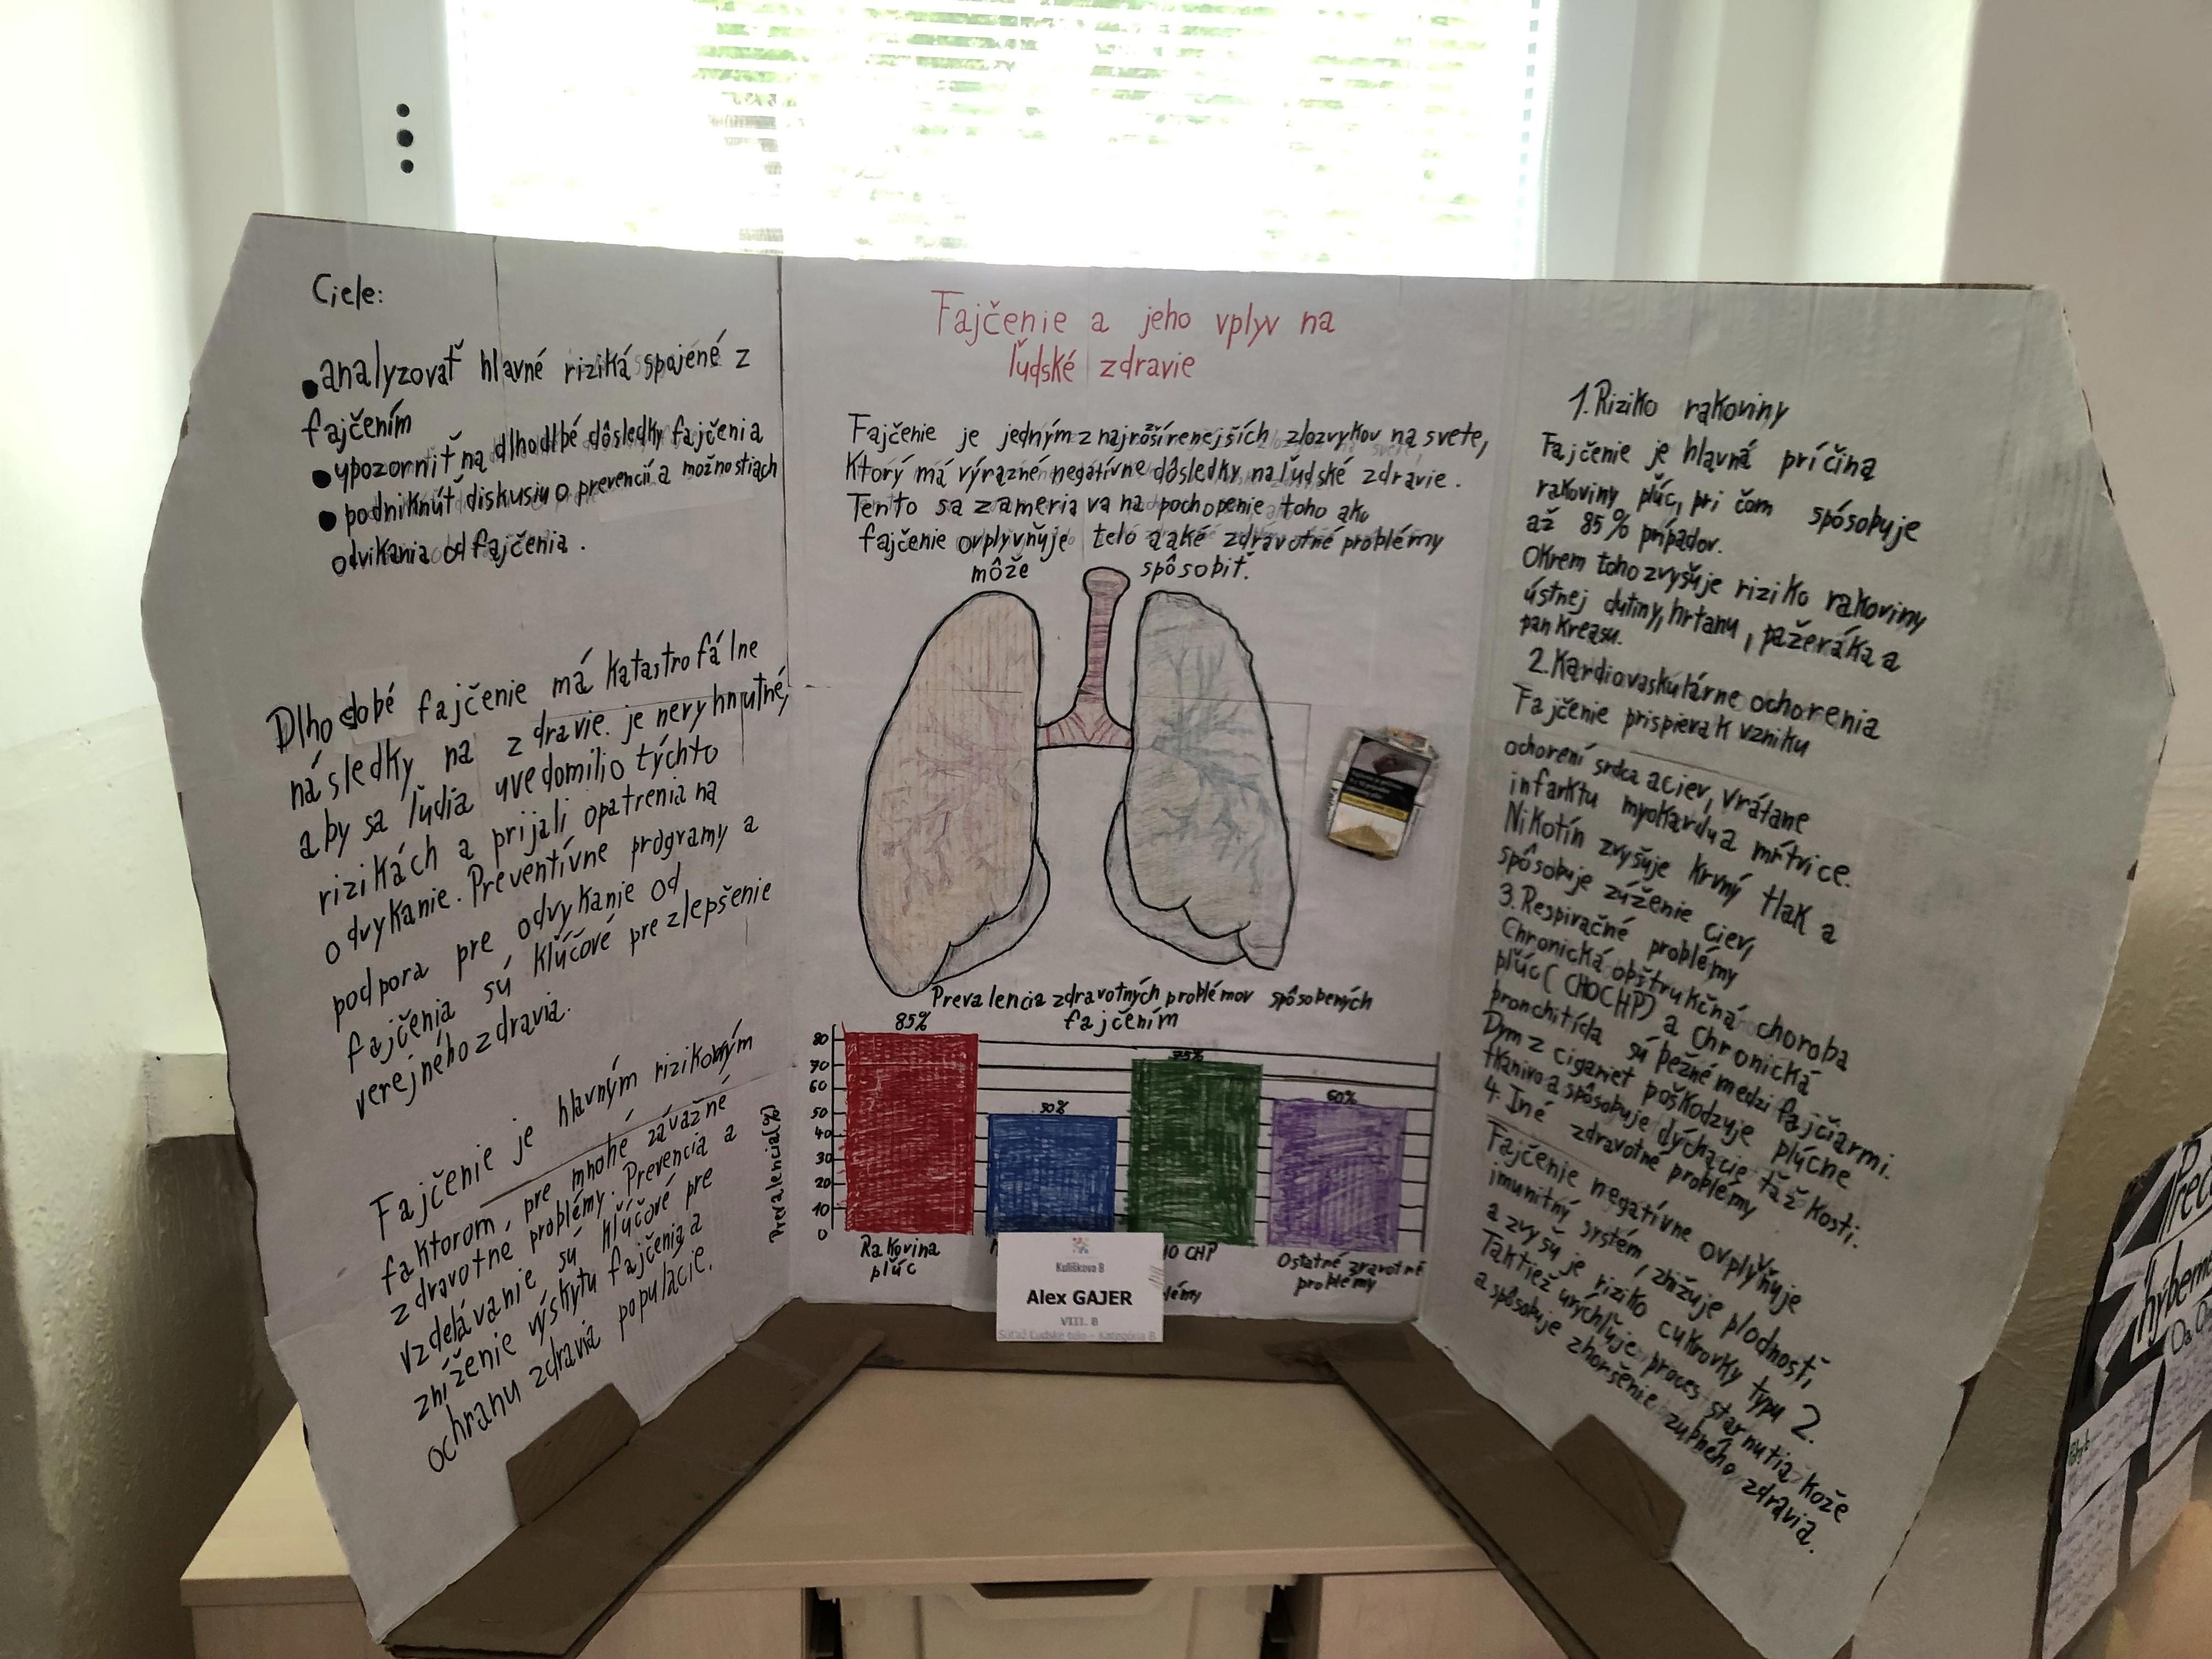 Ciele:
•analyzovať hlavné riziká spojené z
fajčením
•upozorniť na dlhodlbé dôsledky fajčenia
•podniknúť diskusiu o prevencií a možnostiach
odvikania od fajčenia.
Dlhodobé fajčenie má katastrofálne
následky na zdravie. je nevyhnutné,
aby sa ľudia uvedomili o týchto
rizikách a prijali opatrenia na
odvykanie. Preventívne programy a
podpora pre odvykanie od
fajčenia sú kľúčové pre zlepšenie
verejného zdravia.
Fajčenie je hlavným rizikovým
faktorom, pre mnohé závažné
zdravotne problémy. Prevencia a
vzdelávanie sú kľúčové pre
zníženie výskytu fajčenia a
ochranu zdravia populácie.
Fajčenie a jeho vplyv na
ľudské zdravie
Fajčenie je jedným z najrošírenejších zlozvykov na svete,
ktorý má výrazné negatívne dôsledky na ľudské zdravie.
Tento sa zameriava na pochopenie toho ako
fajčenie ovplyvňuje telo a aké zdravotné problémy
môže spôsobiť.
Prevalencia zdravotných problémov spôsobených
fajčením
85%
50%
75%
60%
80
70
60
50
40
30
20
10
0
Prevalencia(%)
Rakovina
plúc
CHP
Ostatné zravotné
problémy
Kulíškova 8
Alex GAJER
VIII. B
Súťaž Ľudské telo - Kategória B
1. Riziko rakoviny
Fajčenie je hlavná príčina
rakoviny plúc, pri čom spósobuje
až 85% prípadov.
Okrem toho zvyšuje riziko rakoviny
ústnej dutiny, hrtanu, pažeráka a
pankreasu.
2. Kardiovaskulárne ochorenia
Fajčenie prispieva k vzniku
ochorení srdca a ciev, vrátane
infarktu myokardu a mŕtvice.
Nikotín zvyšuje krvný tlak a
spôsobuje zúženie ciev,
3. Respiračné problémy
Chronická obštrukčná choroba
plúc (CHOCHP) a Chronická
bronchitída sú bežné medzi fajčiarmi.
Dym z cigariet poškodzuje plúcne
tkanivo a spôsobuje dýchacie ťažkosti.
4. Iné zdravotné problémy
Fajčenie negatívne ovplyňuje
imunitný systém, znižuje plodnosť,
a zvyšuje riziko cukrovky typu 2.
Taktiež urýchľuje proces starnutia kože
a spósobuje zhoršenie zubného zdravia.